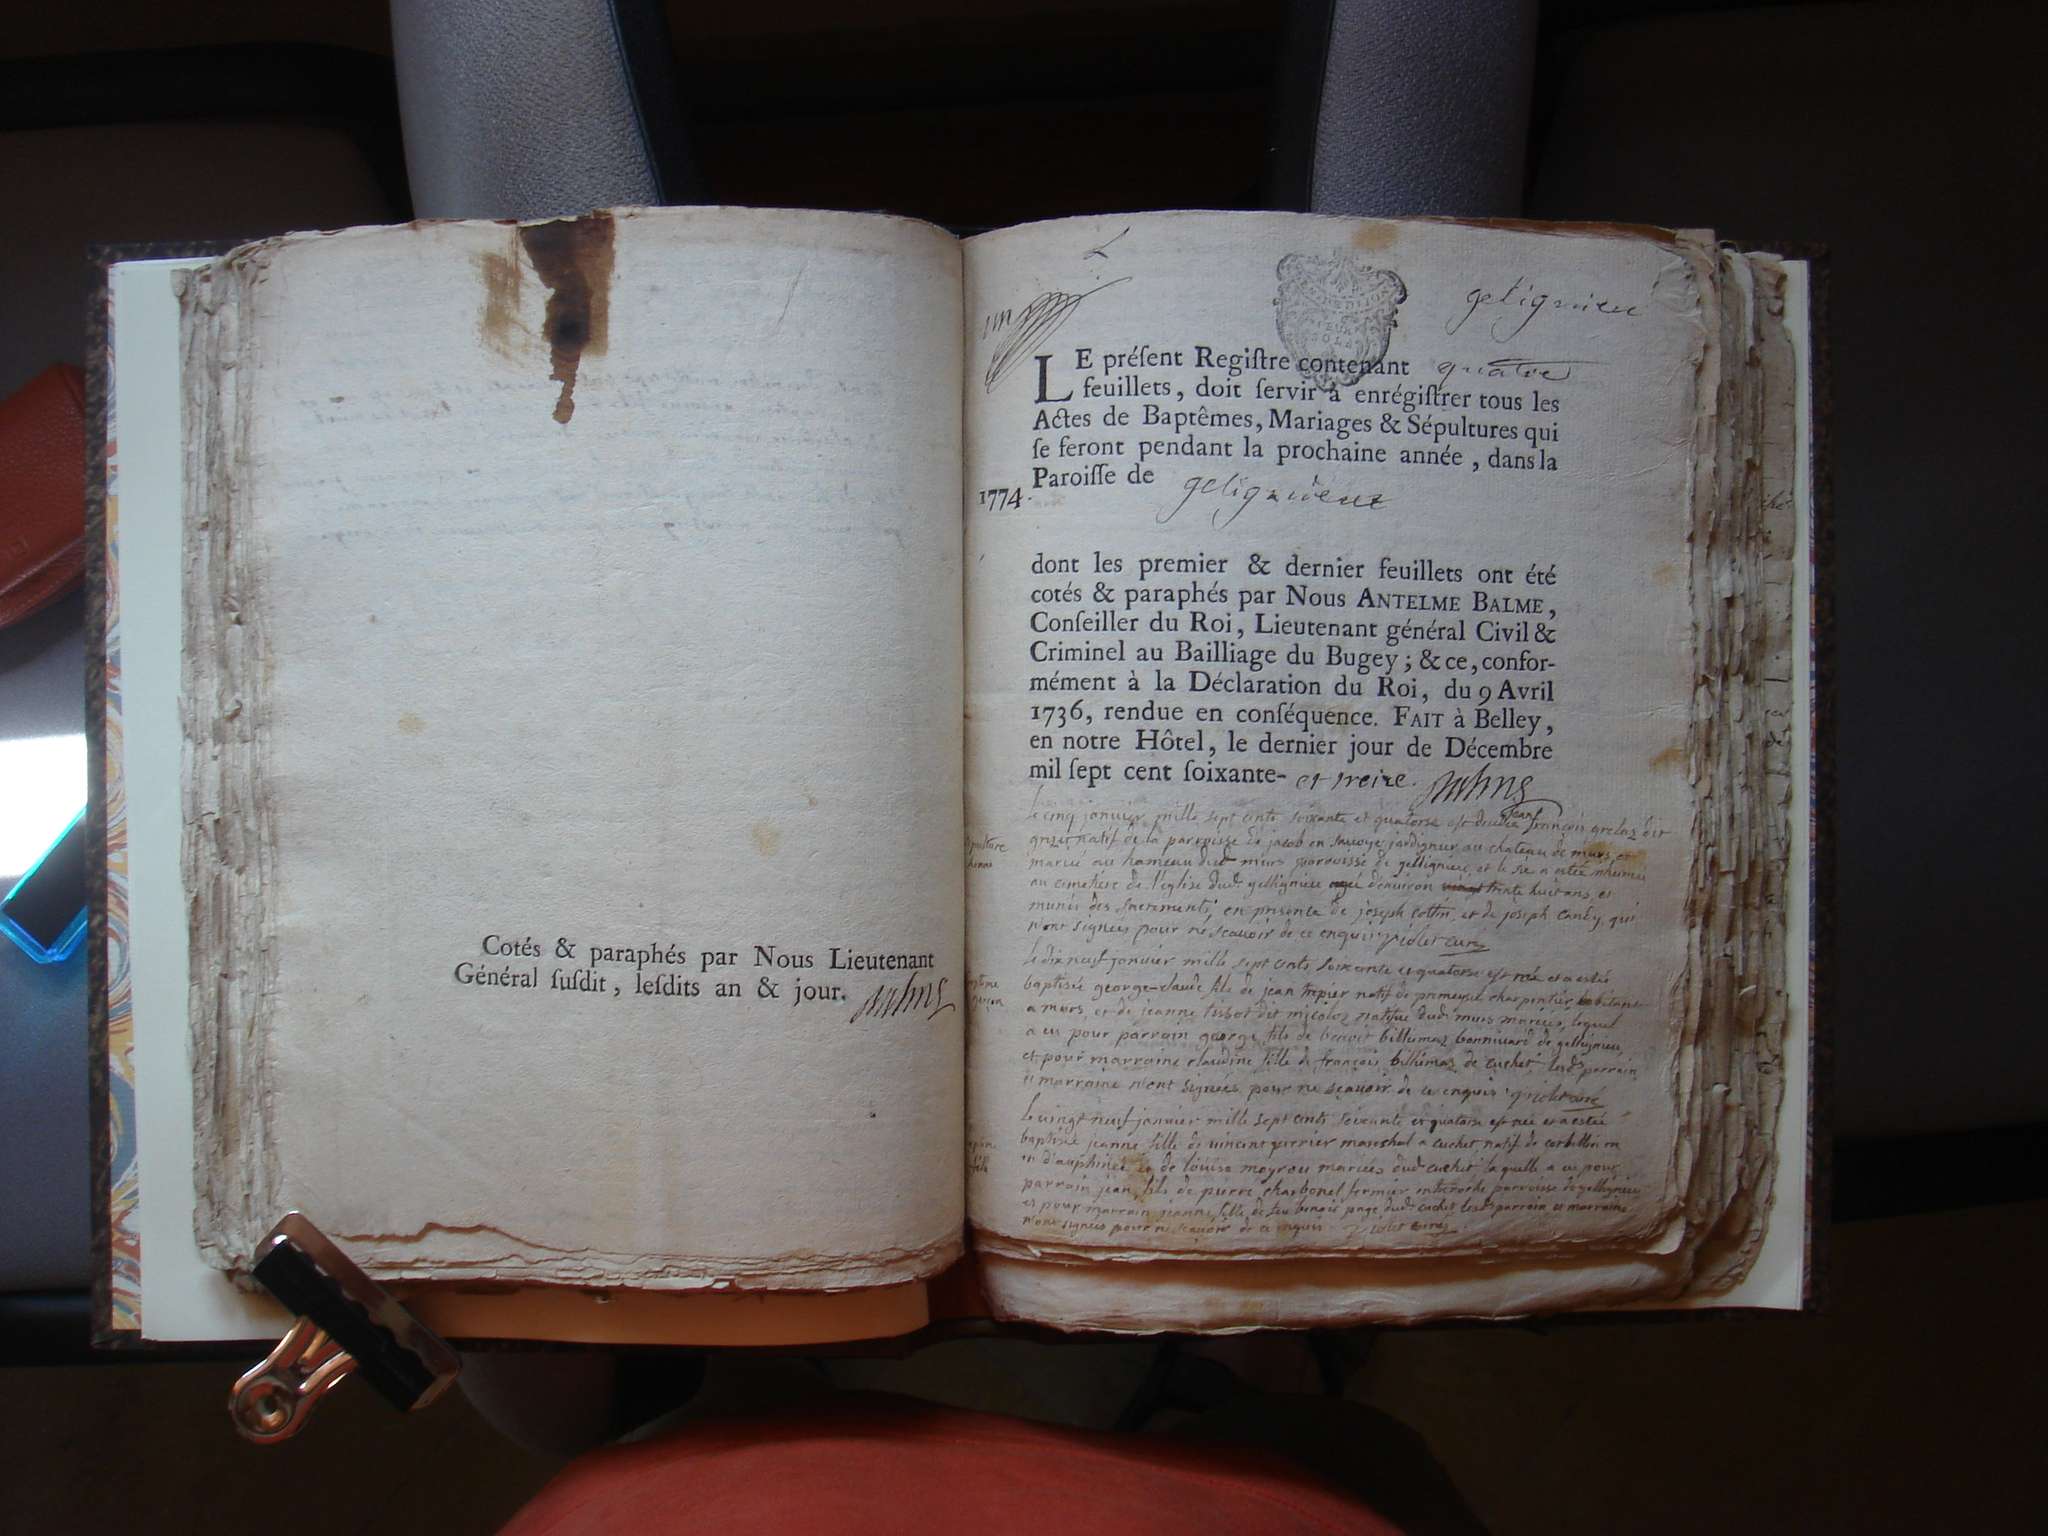 Cotés & paraphés par Nous Lieutenant
Général ſuſdit, leſdits an & jour.
un
getignieu
LE préſent Regiſtre contenant quatre
feuillets, doit ſervir à enrégiſtrer tous les
Actes de Baptêmes, Mariages & Sépultures qui
ſe feront pendant la prochaine année, dans la
Paroiſſe de getignieux
1774.
dont les premier & dernier feuillets ont été
cotés & paraphés par Nous ANTELME BALME,
Conſeiller du Roi, Lieutenant général Civil &
Criminel au Bailliage du Bugey; & ce, confor-
mément à la Déclaration du Roi, du 9 Avril
1736, rendue en conſéquence. FAIT à Belley,
en notre Hôtel, le dernier jour de Décembre
mil ſept cent ſoixante- et treize.
le cinq janvier mille sept cents soixante et quatorse est jean françois grelaz dit
natif de la parroisse de jacob en jardigneur au chateau de murs et
marié au hameau dud murs parroisse de gellignieu, et le six a estée
au cemetiére de l'églige dud. gellignieu d'environ trente huit ans et
munis des sacrements, en présence de joseph cottin et de joseph qui
n'ont signées pour ne sçauoir de ce enquis violet curé
le dix neuf janvier mille sept cents soixante et quatorse est née et a estée
baptisée george-claude fils de jean trepier natif de premeysel charpentier habitant
a murs et de jeanne tissot dit natifue dud. murs mariées, lequel
a eu pour parrain george fils de benoit billiémaz de gellignieu,
et pour marraine claudine fille de françois billiémaz de cuchet lesd. parrain
et marraine n'ont signées pour ne sçauoir de ce enquis violet curé
le vingt neuf janvier mille sept cents soixante et quatorse est née et a estée
baptisée jeanne fille de vincent guerrier mareshal a cuchet natif de
en d'auphinée et de louise meyrou mariées dud. cuchet laquelle a eu pour
parrain jean fils de pierre charbonel fermier parroisse de gellignieu
et pour marraine jeanne fille de feu benoit page dud. cuchet lesd. parrain et marraine
n'ont signées pour ne sçauoir de ce enquis violet curé